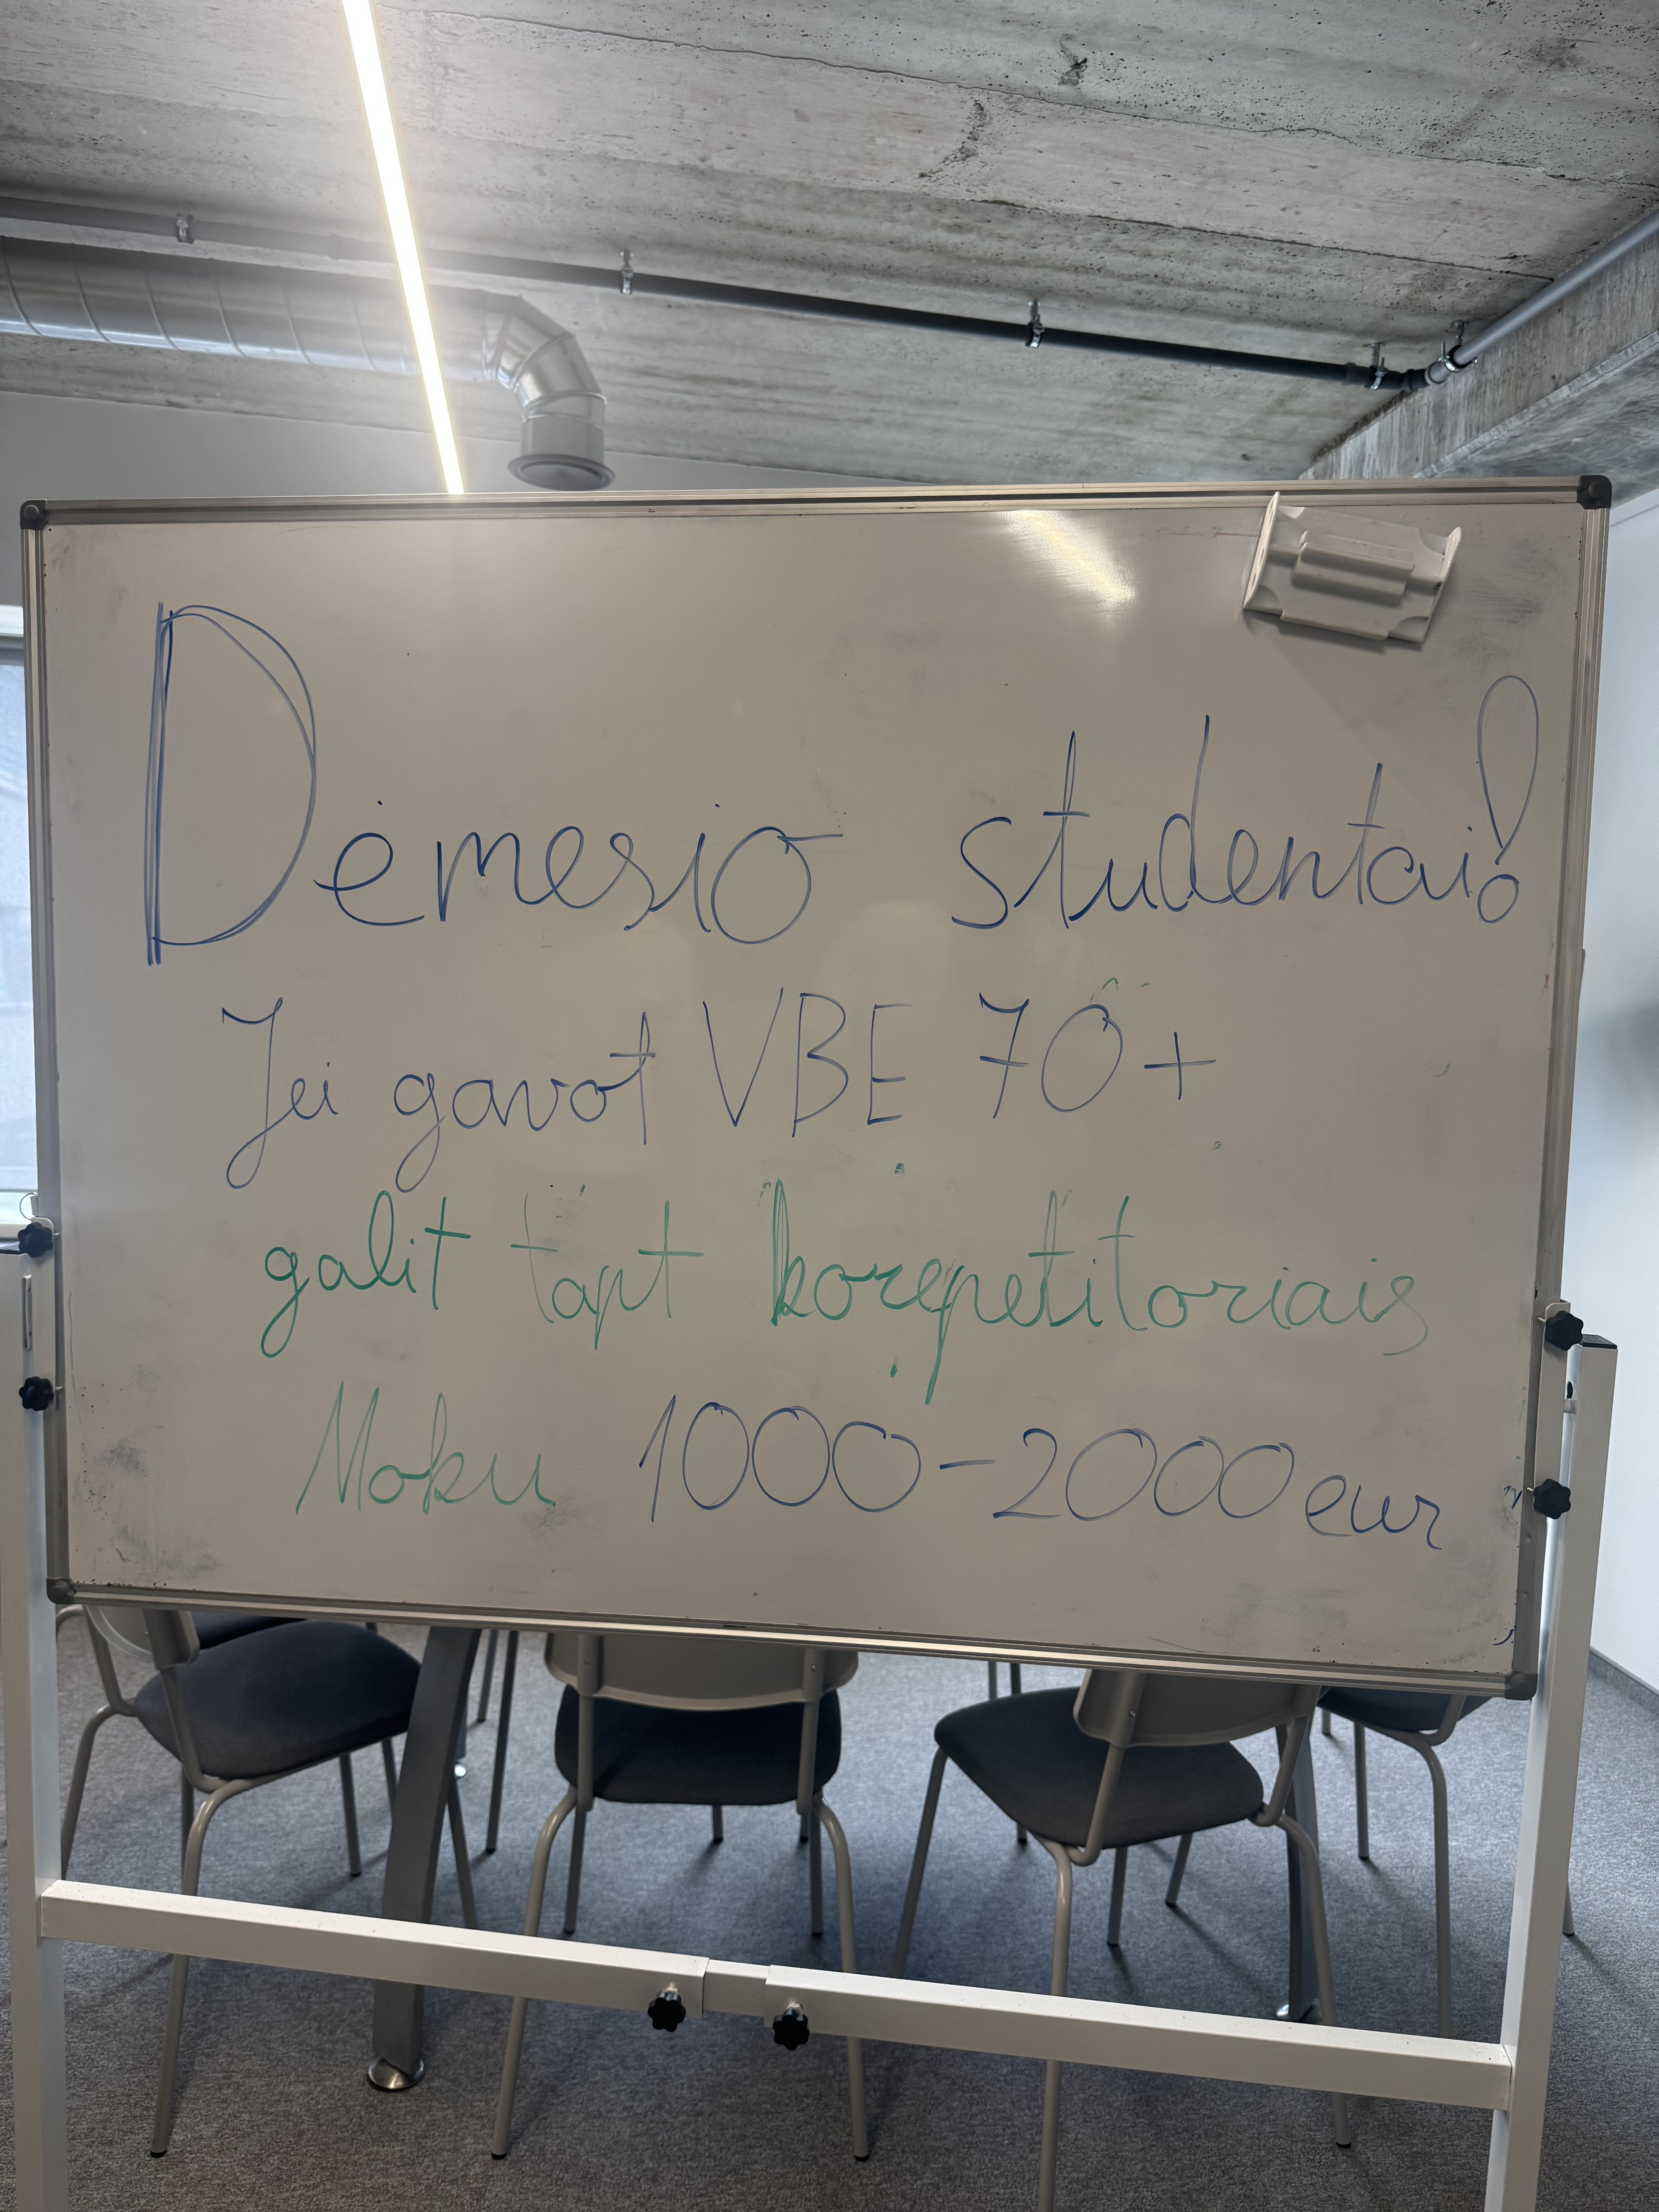 Dėmesio studentai!
Jei gavot VBE 70+
galit tapt korepetitoriais
Moku 1000-2000 eur